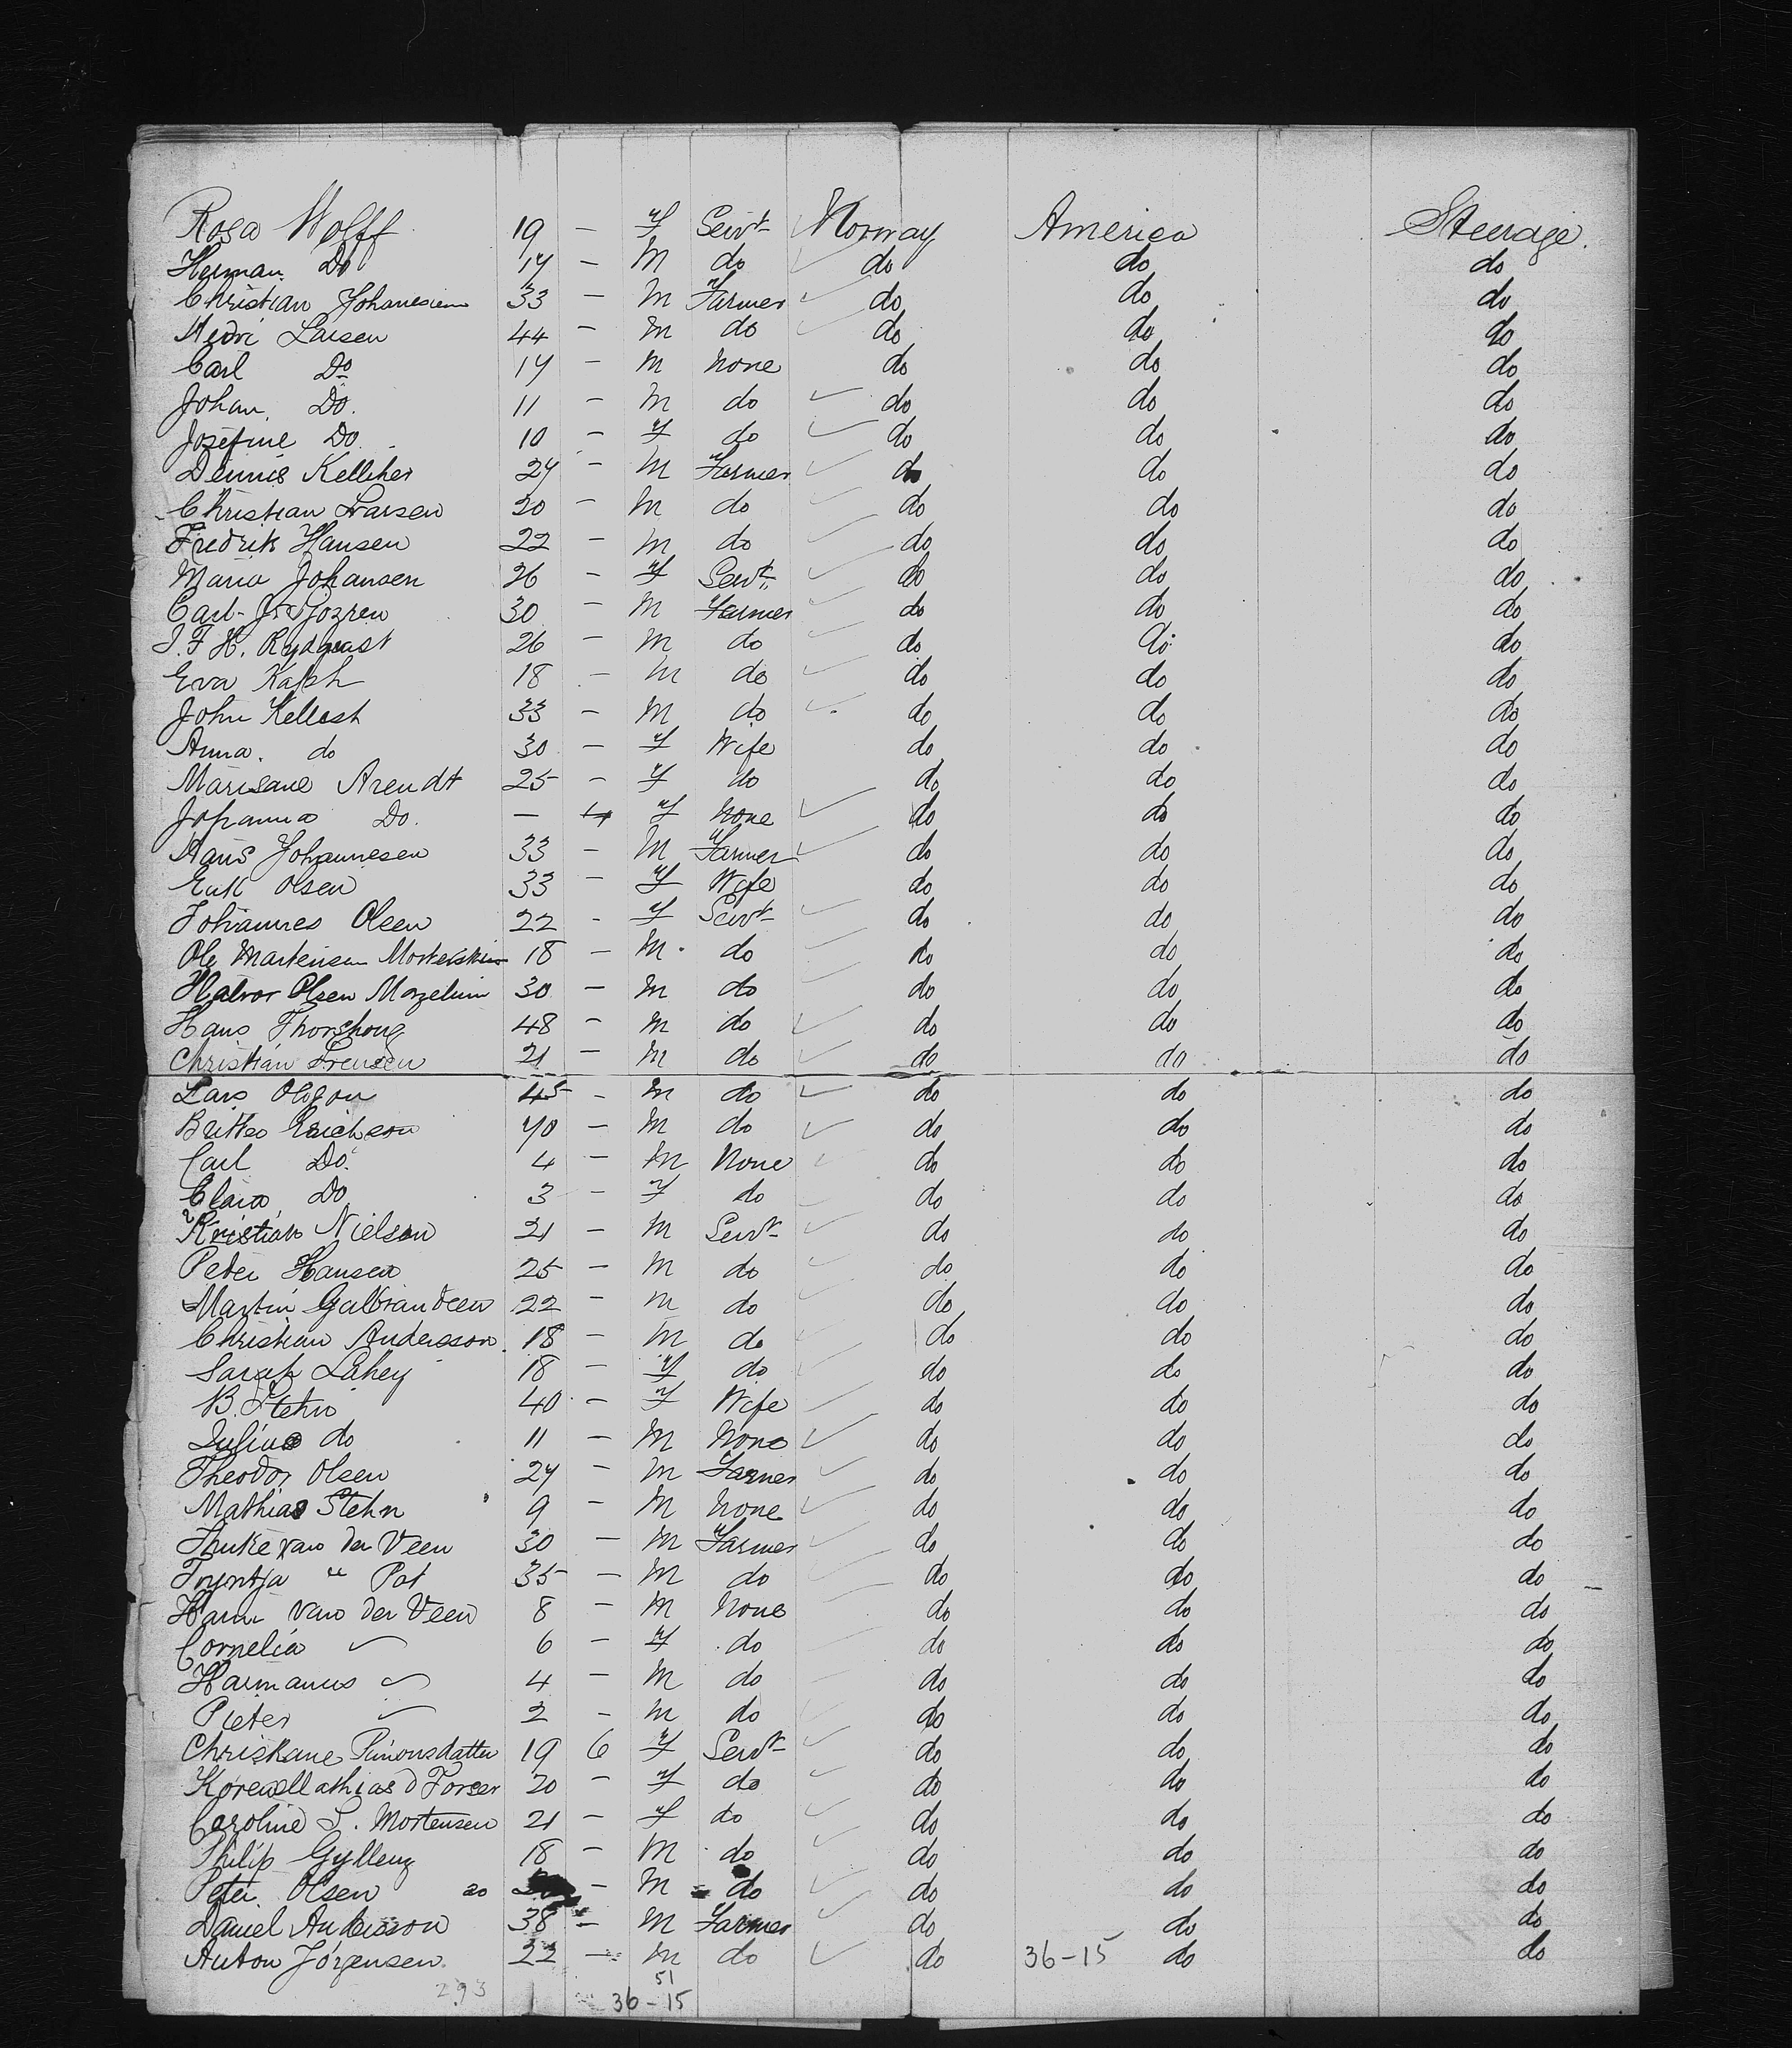 Rosa Wolff 19 — f Servt Norway America Steerage.
Herman Do 17 — M do do do do
Christian Johanesien 33 — M Farmer do do do
Larsen 44 — M do do do do
Carl Do 17 — M None do do do
Johan Do. 11 — M do do do do
Josefine Do 10 — f do do do do
Dennis Kelliher 27 — M Farmer do do do
Christian Larsen 20 — M do do do do
Fredrik Hansen 22 — M do do do do
Maria Johansen 26 — f Servt do do do
Carl J. 30 — M Farmer do do do
J. F. H. Rydquist 26 — M do do do do
Eva 18 — M do do do do
John Kellest 33 — M do do do do
Anna. do 30 — f Wife do do do
Marisane Arendt 25 — f do do do do
Johanna Do. — f None do do do
Hans Johannesen 33 — M Farmer do do do
Olsen 33 — f Wife do do do
Johannes Olsen 22 - f Servt do do do
Ole Martensen 18 — M do do do do
Halvor Olsen 30 — M do do do do
Hans 48 — M do do do do
Christian 21 — M do do do do
Lars 45 - M do do do do
Erichson 70 — M do do do do
Carl Do. 4 — M None do do do
Clara Do 3 — f do do do do
Kristian Nielson 21 — M Servt do do do
Peter Hansen 25 — M do do do do
Martin 22 — M do do do do
Christian Andersson 18 — M do do do do
Sarah Lahey 18 — f do do do do
B. Stehn 40 — f Wife do do do
Julius do 11 — M None do do do
Theodor Olsen 27 — M Farmer do do do
Mathias Stehn 9 — M None do do do
van der Veen 30 — M Farmer do do do
Tryntja " Pot 35 — M do do do do
Harm van der Veen 8 — M None do do do
Cornelia 6 — f do do do do
Harmanus 4 — M do do do do
Pieter 2 - M do do do do
19 6 f Servt do do do
20 — f do do do do
Caroline S. Mortensen 21 — f do do do do
Philip 18 — M do do do do
Peter Olsen 20 — M do do do do
Daniel Andersson 38 — M Farmer do do do
Anton Jörgensen 22 — M do do 36-15 do do
293 51
36-15